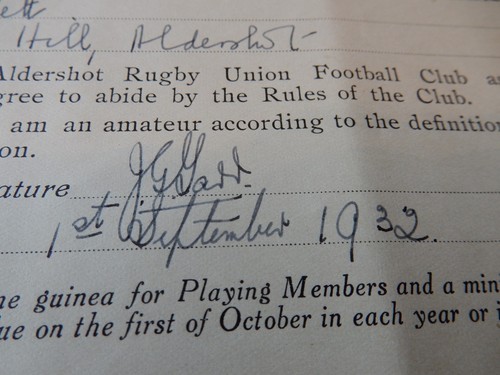 ett
Hill, Aldershot
Aldershot Rugby Union Football Club a
gree to abide by the Rules of the Club.
am an amateur according to the definition
on.
ature
1st September 1932.
ne guinea for Playing Members and a min
ue on the first of October in each year or i